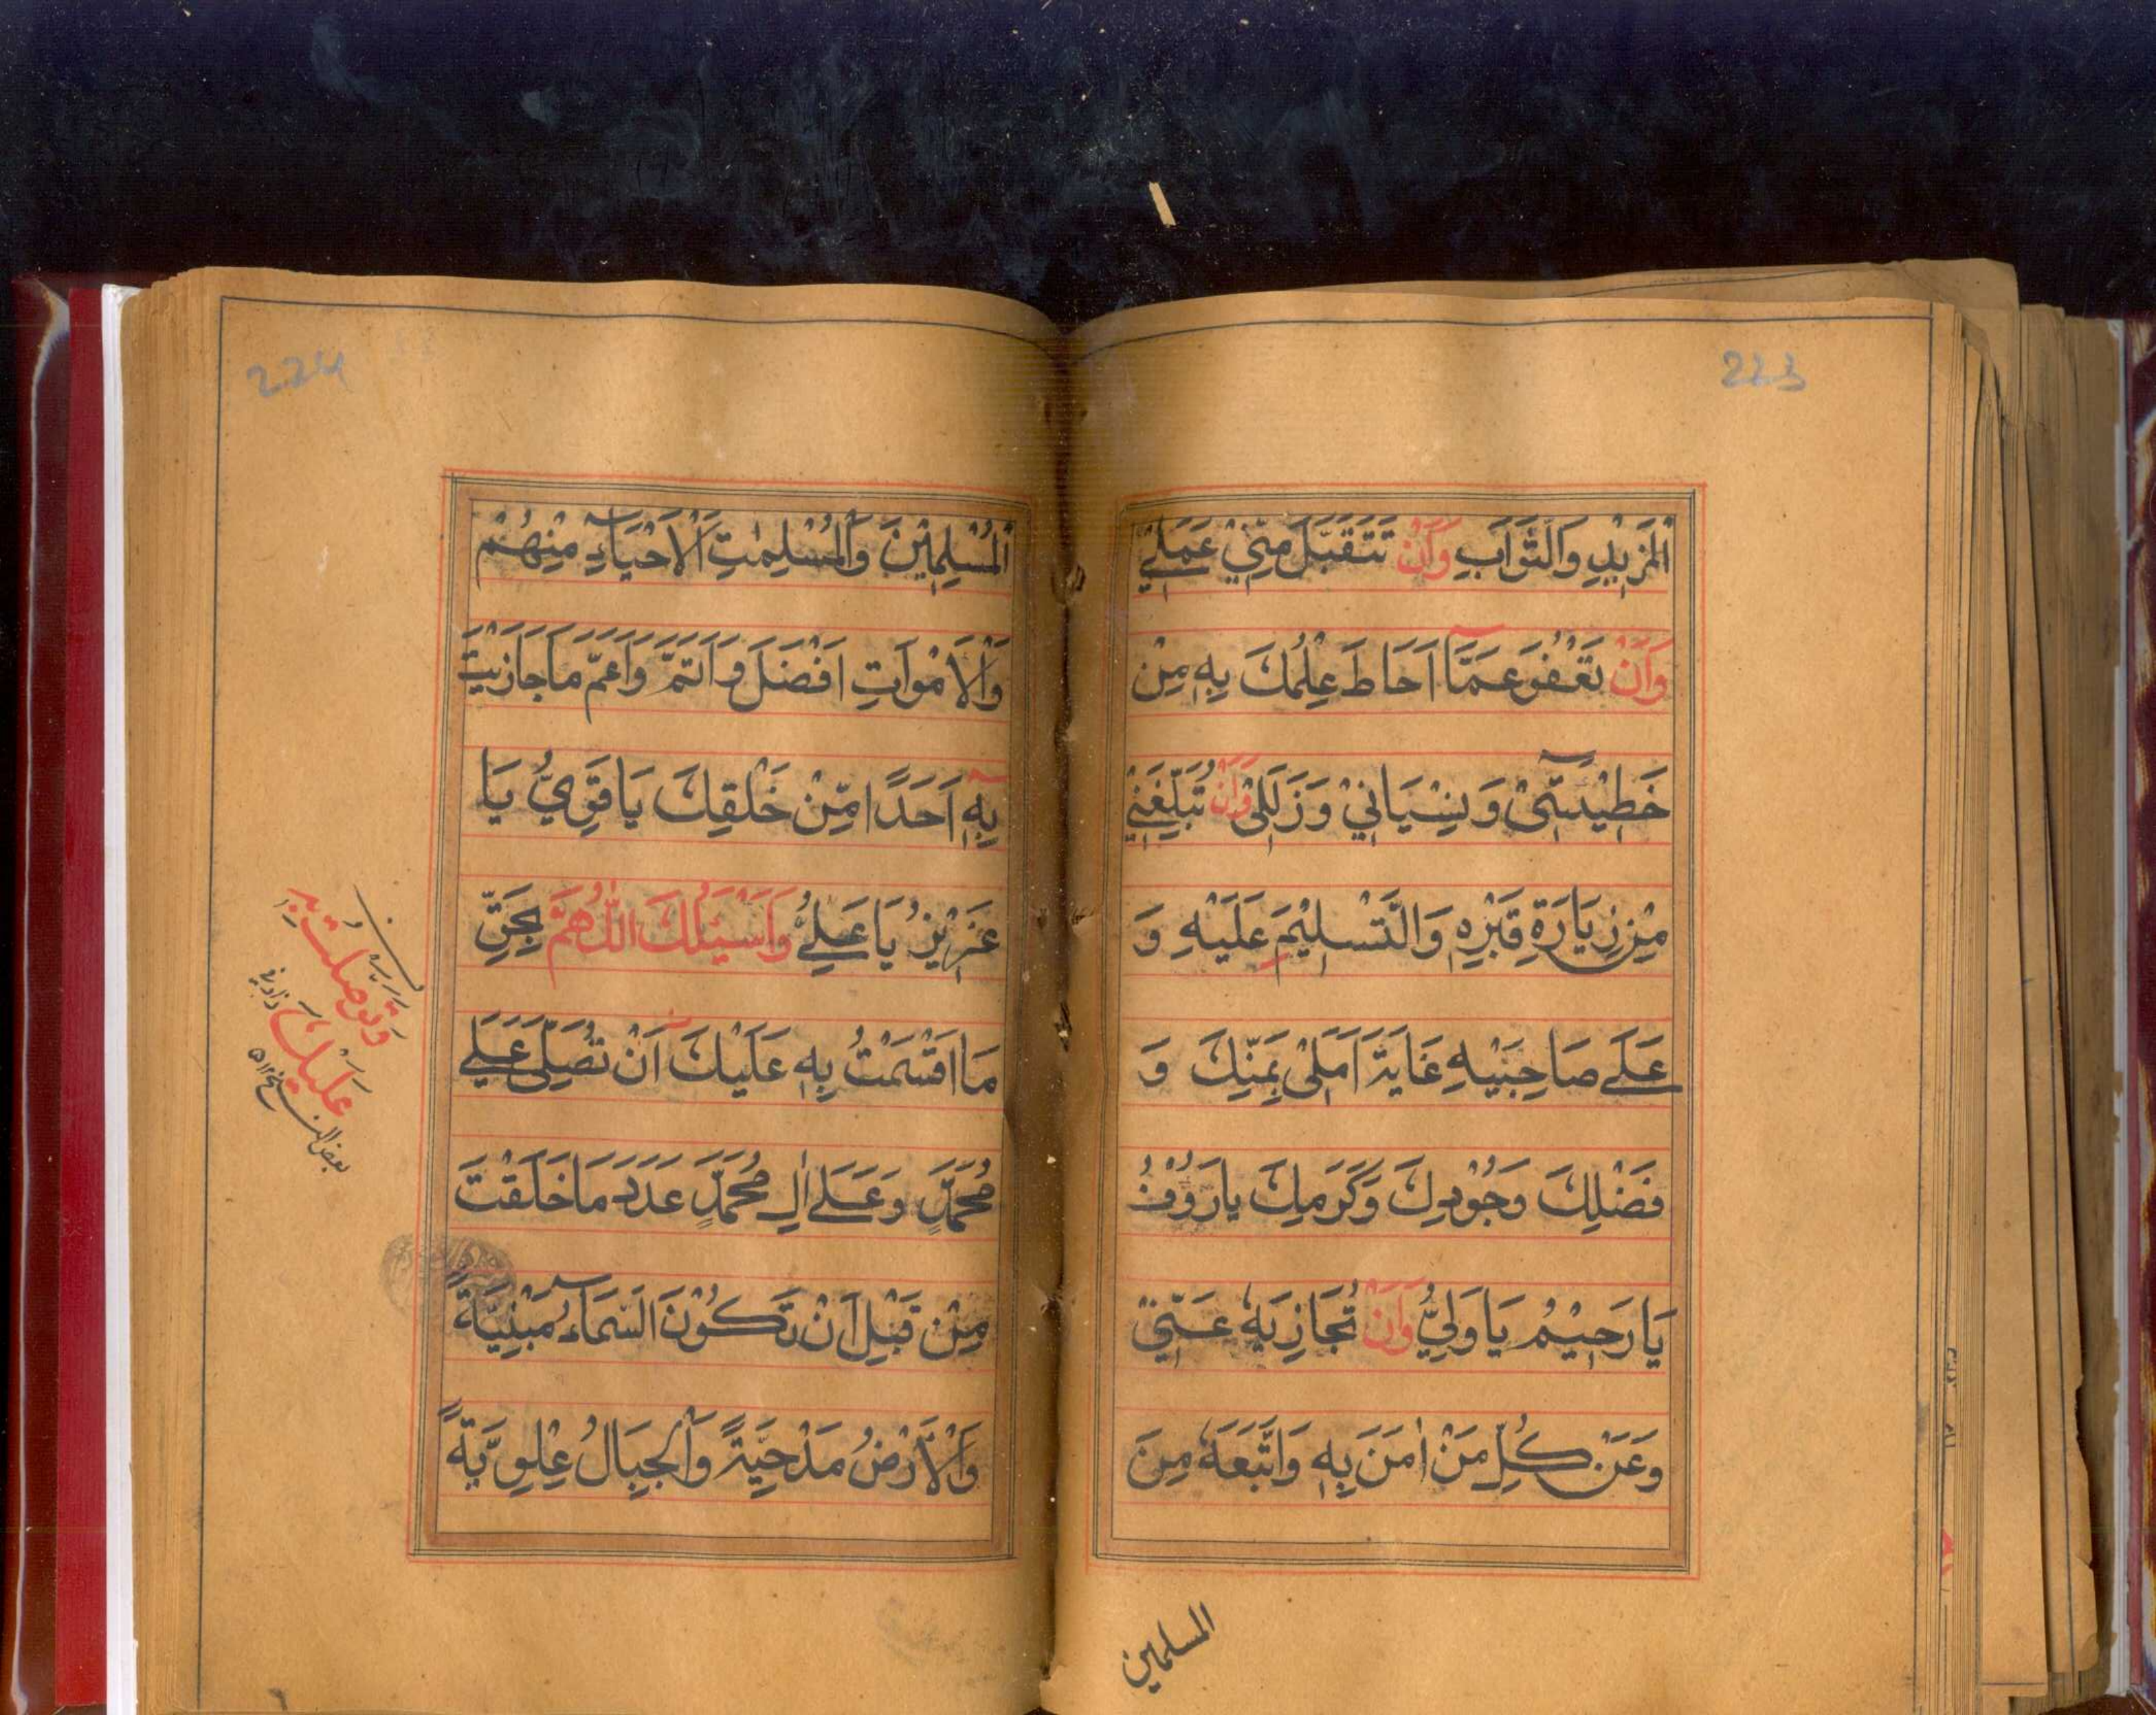 223
الْمَزِيْدِ وَالثَّوَابِ وَاَنْ تَتَقَبَّلَ مِنِّيْ عَمَلِيْ
وَاَنْ تَعْفُوَ عَمَّآ اَحَاطَ عِلْمُكَ بِهٖ مِنْ
خَطِيْئَتِيْ وَنِسْيَانِيْ وَزَلَلِيْ وَاَنْ تُبَلِّغَنِيْ
مِنْ زِيَارَةِ قَبْرِهٖ وَالتَّسْلِيْمِ عَلَيْهِ وَ
عَلٰى صَاحِبَيْهِ غَايَةَ اَمَلِيْ بِمَنِّكَ وَ
فَضْلِكَ وَجُوْدِكَ وَكَرَمِكَ يَا رَءُوْفُ
يَا رَحِيْمُ يَا وَلِيُّ وَاَنْ تُجَازِيَهٗ عَنِّيْ
وَعَنْ كُلِّ مَنْ اٰمَنَ بِهٖ وَاتَّبَعَهٗ مِنَ
المسلمين
224
الْمُسْلِمِيْنَ وَالْمُسْلِمٰتِ الْاَحْيَآءِ مِنْهُمْ
وَالْاَمْوَاتِ اَفْضَلَ وَاَتَمَّ وَاَعَمَّ مَا جَازَيْتَ
بِهٖٓ اَحَدًا مِّنْ خَلْقِكَ يَا قَوِيُّ يَا
عَزِيْزُ يَا عَلِيُّ وَاَسْئَلُكَ اللّٰهُمَّ بِحَقِّ
مَا اَقْسَمْتُ بِهٖ عَلَيْكَ اَنْ تُصَلِّيَ عَلٰى
مُحَمَّدٍ وَعَلٰى اٰلِ مُحَمَّدٍ عَدَدَ مَا خَلَقْتَ
مِنْ قَبْلِ اَنْ تَكُوْنَ السَّمَآءُ مَبْنِيَّةً
وَالْاَرْضُ مَدْحِيَّةً وَالْجِبَالُ عِلْوِيَّةً
وَتَوَسَّلْتُ بِهٖ
عَلَيْكَ
بعض النسخ